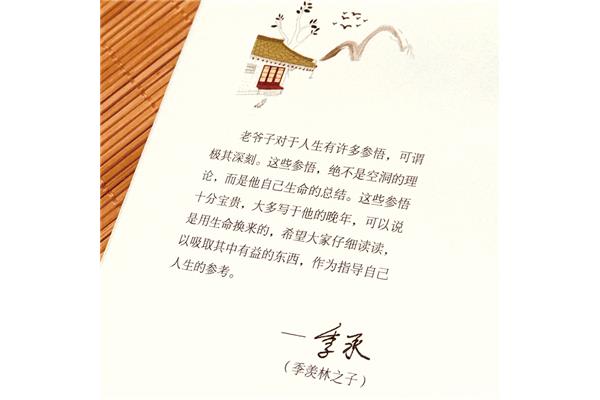 老爷子对于人生有许多参悟，可谓
极其深刻。这些参悟，绝不是空洞的理
论，而是他自己生命的总结。这些参悟
十分宝贵，大多写于他的晚年，可以说
是用生命换来的，希望大家仔细读读，
以吸取其中有益的东西，作为指导自己
人生的参考。
— 季承
（季羡林之子）